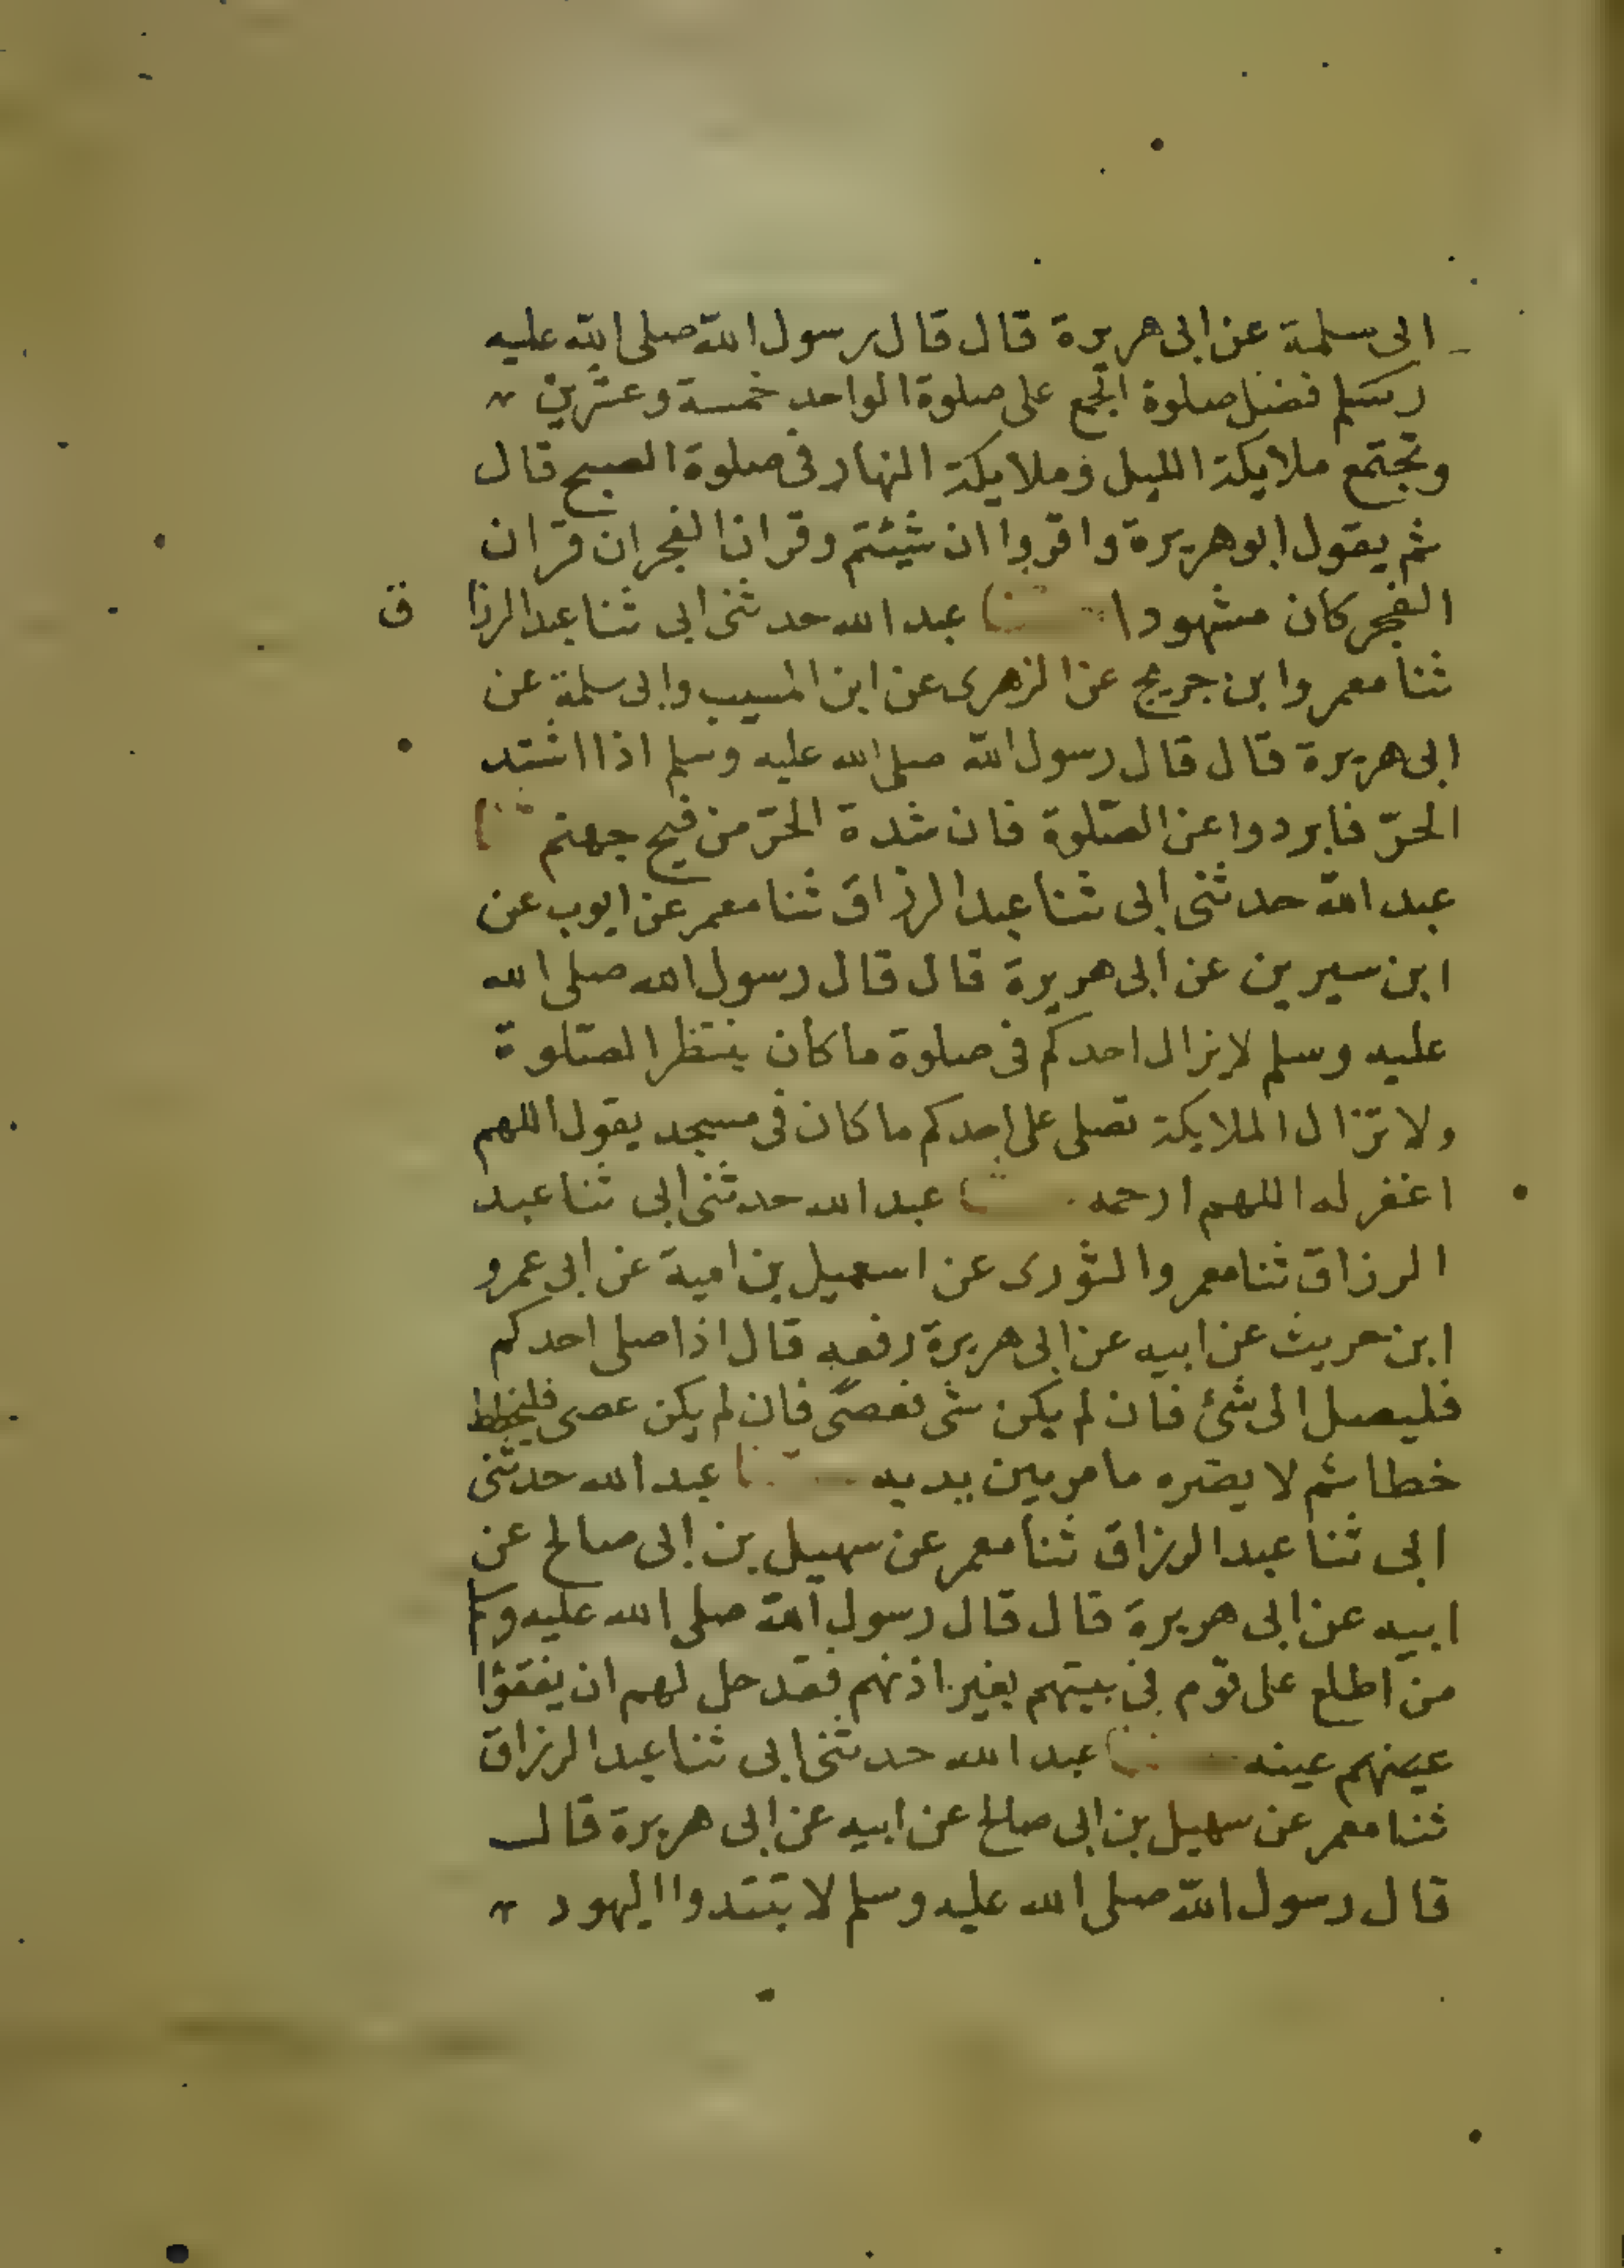 ابى سلمة عن ابى هريرة قال قال رسول الله صلى الله عليه
وسلم فضل صلوة الجمع على صلوة الواحد خمسة وعشرين
وتجتمع ملايكة الليل وملايكة النهار فى صلوة الصبح قال
ثم يقول ابو هريرة واقروا ان شيئتم وقران الفجر ان قران
الفجر كان مشهودا ثنا عبد الله حدثنى ابى ثنا عبد الرزاق
ثنا معمر وابن جريج عن الزهرى عن ابن المسيب وابى سلمة عن
ابى هريرة قال قال رسول الله صلى الله عليه وسلم اذا اشتد
الحرّ فابردوا عن الصّلوة فان شدة الحرّ من فيح جهنم ثنا
عبد الله حدثنى ابى ثنا عبد الرزاق ثنا معمر عن ايوب عن
ابن سيرين عن ابى هريرة قال قال رسول الله صلى الله
عليه وسلم لا يزال احدكم فى صلوة ما كان ينتظر الصّلوة
ولا تزال الملايكة تصلى على احدكم ما كان فى مسجد يقول اللهم
اغفر له اللهم ارحمه ثنا عبد الله حدثنى ابى ثنا عبد
الرزاق ثنا معمر والثورى عن اسمعيل بن امية عن ابى عمرو
ابن حريث عن ابيه عن ابى هريرة رفعه قال اذا صلى احدكم
فليصل الى شئ فان لم يكن شى فعصى فان لم يكن عصى فليخطط
خطا ثم لا يضره ما مر بين يديه ثنا عبد الله حدثنى
ابى ثنا عبد الرزاق ثنا معمر عن سهيل بن ابى صالح عن
ابيه عن ابى هريرة قال قال رسول الله صلى الله عليه وسلم
من اطلع على قوم فى بيتهم بغير اذنهم فقد حل لهم ان يفقؤا
عينه ثنا عبد الله حدثنى ابى ثنا عبد الرزاق
ثنا معمر عن سهيل بن ابى صالح عن ابيه عن ابى هريرة قال
قال رسول الله صلى الله عليه وسلم لا تبتدوا اليهود